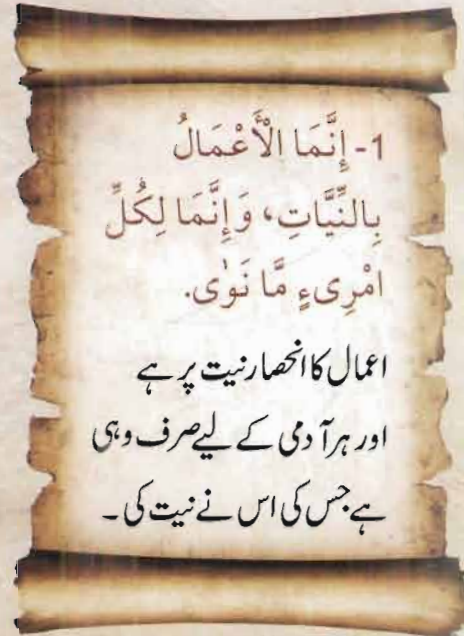 1- إِنَّمَا الْأَعْمَالُ
بِالنِّيَّاتِ، وَإِنَّمَا لِكُلِّ
امْرِیءٍ مَّا نَوٰی.
اعمال کا انحصار نیت پر ہے
اور ہر آدمی کے لیے صرف وہی
ہے جس کی اس نے نیت کی۔